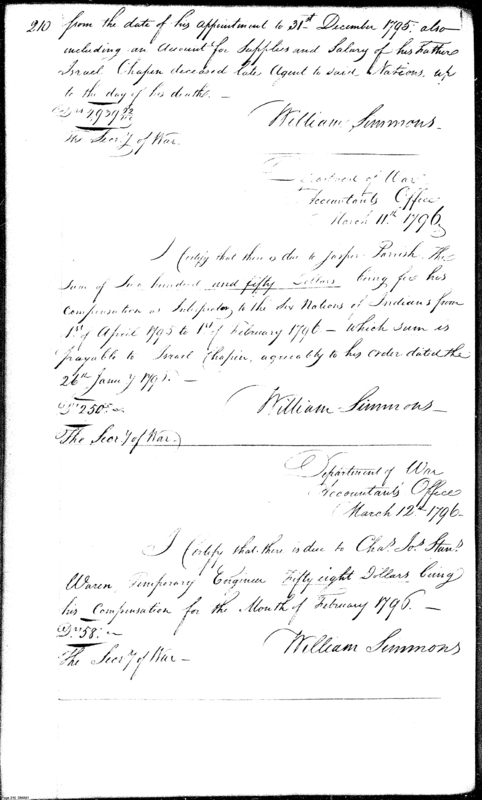 210 from the date of his appointment to 31st December 1795. also
including an Account for Supplies and Salary of his Father
Israel Chapin deceased late Agent to said Nations, up
to the day of his death. —
William Simmons.
The Secry of War.
Department of War
Accountants Office
March 11th 1796
I Certify that there is due to Jasper Parrish The
Sum of Two hundred and fifty Dollars being for his
Compensation as Interpreter to the Six Nations of Indians from
1st of April 1795 to 1st of February 1796 — which sum is
payable to Israel Chapin, agreeably to his order dated the
26th Jany 1796. —
Ds 250. —
William Simmons —
The Secry of War.
Department of War
Accountants Office
March 12th 1796 —
I Certify that there is due to Chas. Jos. Stans.
Waren, Temporary Engineer Fifty eight Dollars being
his Compensation for the Month of February 1796. —
Ds 58. —
William Simmons
The Secry of War —